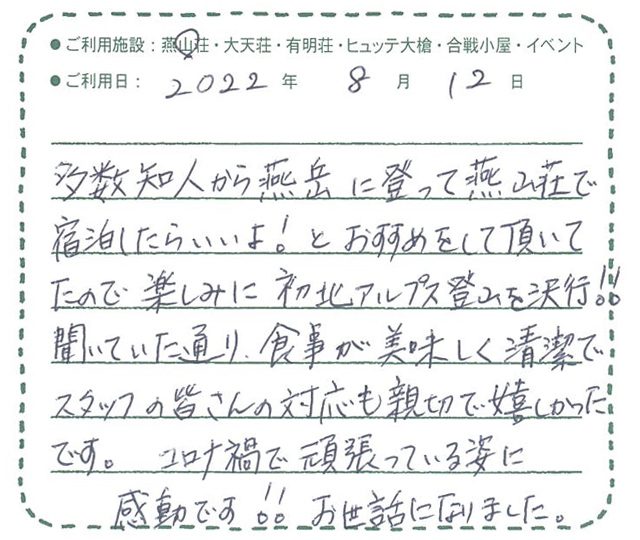 ●ご利用施設：燕山荘・大天荘・有明荘・ヒュッテ大槍・合戦小屋・イベント
●ご利用日： 2022 年 8 月 12 日
多数知人から燕岳に登って燕山荘で
宿泊したらいいよ！とおすすめをして頂いて
たので楽しみに初北アルプス登山を決行!!
聞いていた通り、食事が美味しく清潔で
スタッフの皆さんの対応も親切で嬉しかった
です。 コロナ禍で頑張っている姿に
感動です!! お世話になりました。